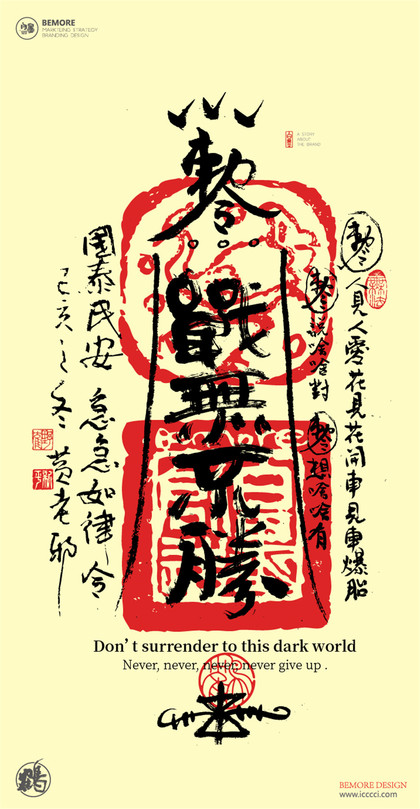 BEMORE
MARKETING STRATEGY
BRANDING DESIGN
A STORY
ABOUT
THE BRAND
勅令
戰無不勝
勅令
人見人愛花見花開車見車爆胎
勅令
說啥啥對
勅令
想啥啥有
國泰民安 急急如律令
己亥之冬 黃老邪
Don’t surrender to this dark world
Never, never, never, never give up .
鶴
BEMORE DESIGN
www.icccci.com